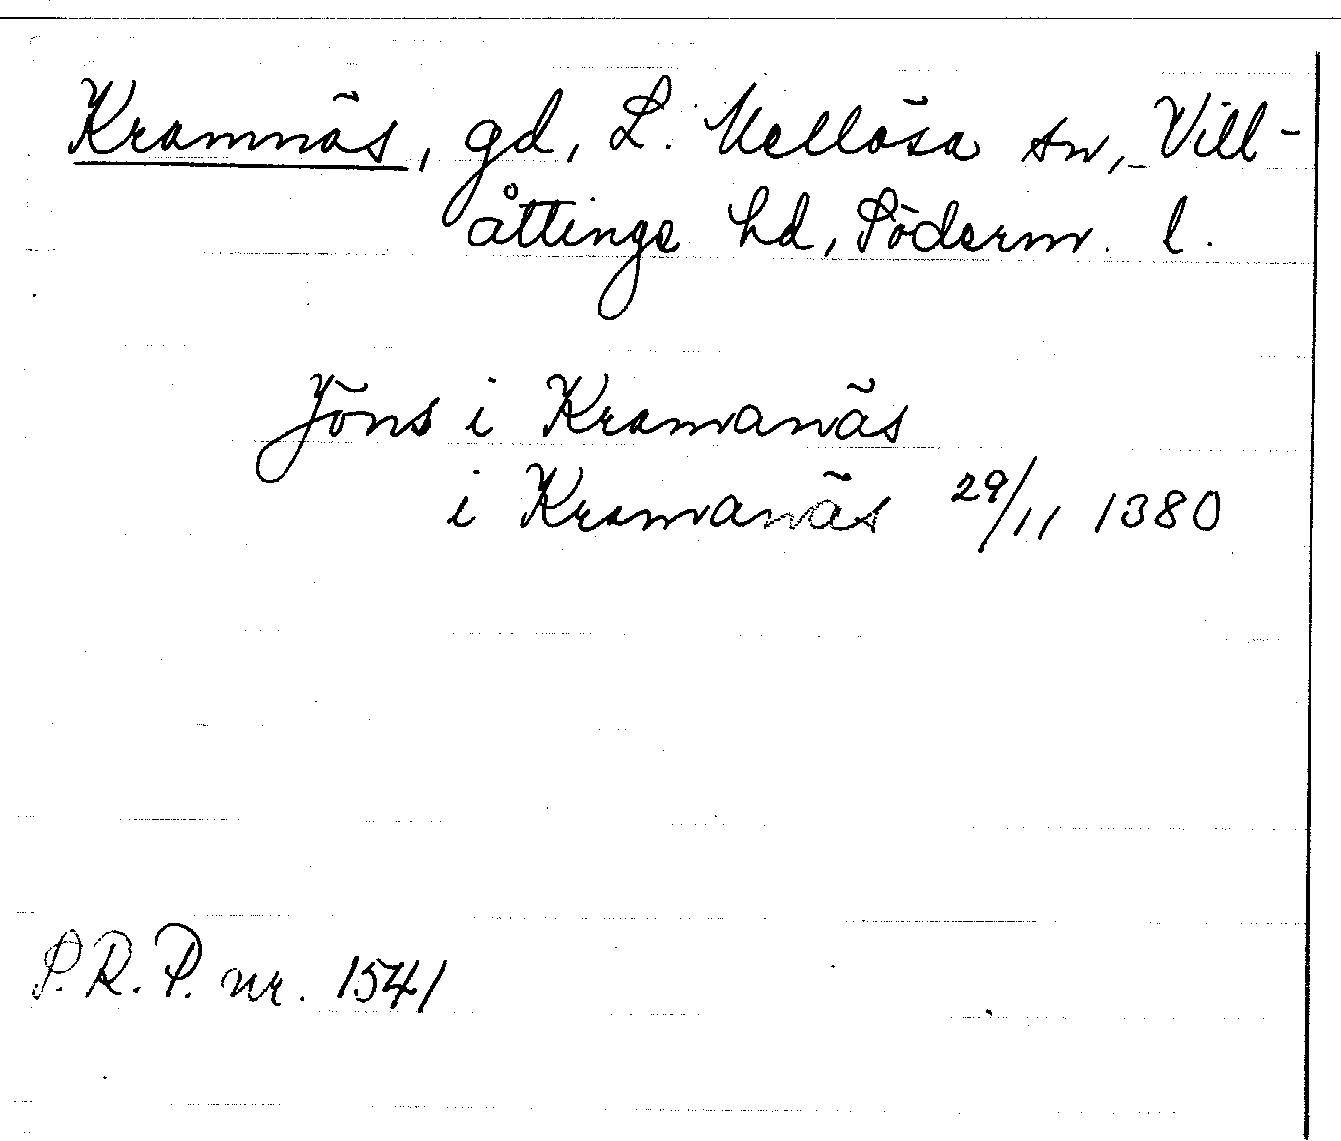 Kramnäs, gd, L. Mellösa sn, Vill-
åttinge hd, Söderm. l.
Jöns i Kramanäs
i Kramanäs 29/11 1380
S.R.P. nr. 1541